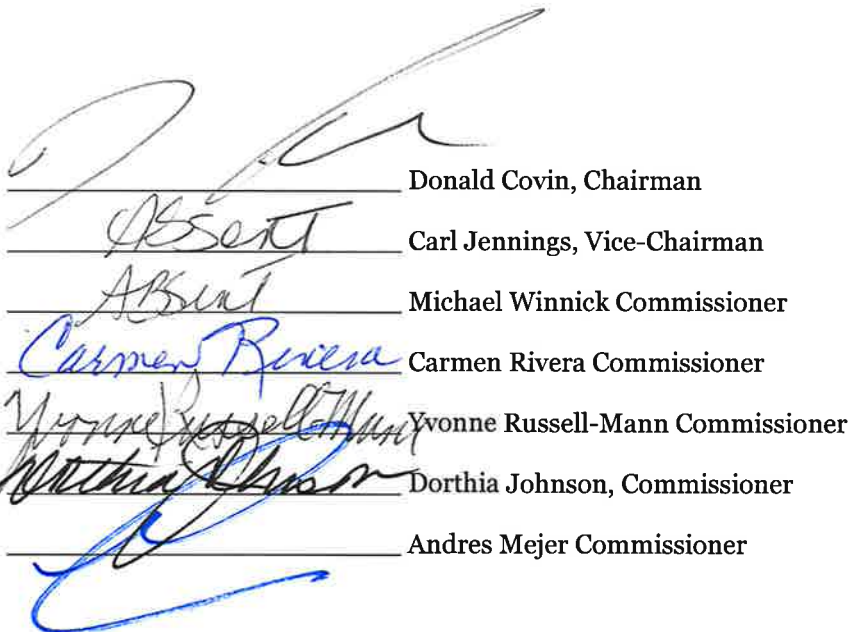 Donald Covin, Chairman
Absent Carl Jennings, Vice-Chairman
Absent Michael Winnick Commissioner
Carmen Rivera Carmen Rivera Commissioner
Yvonne Russell-Mann Yvonne Russell-Mann Commissioner
Dorthia Johnson Dorthia Johnson, Commissioner
Andres Mejer Commissioner